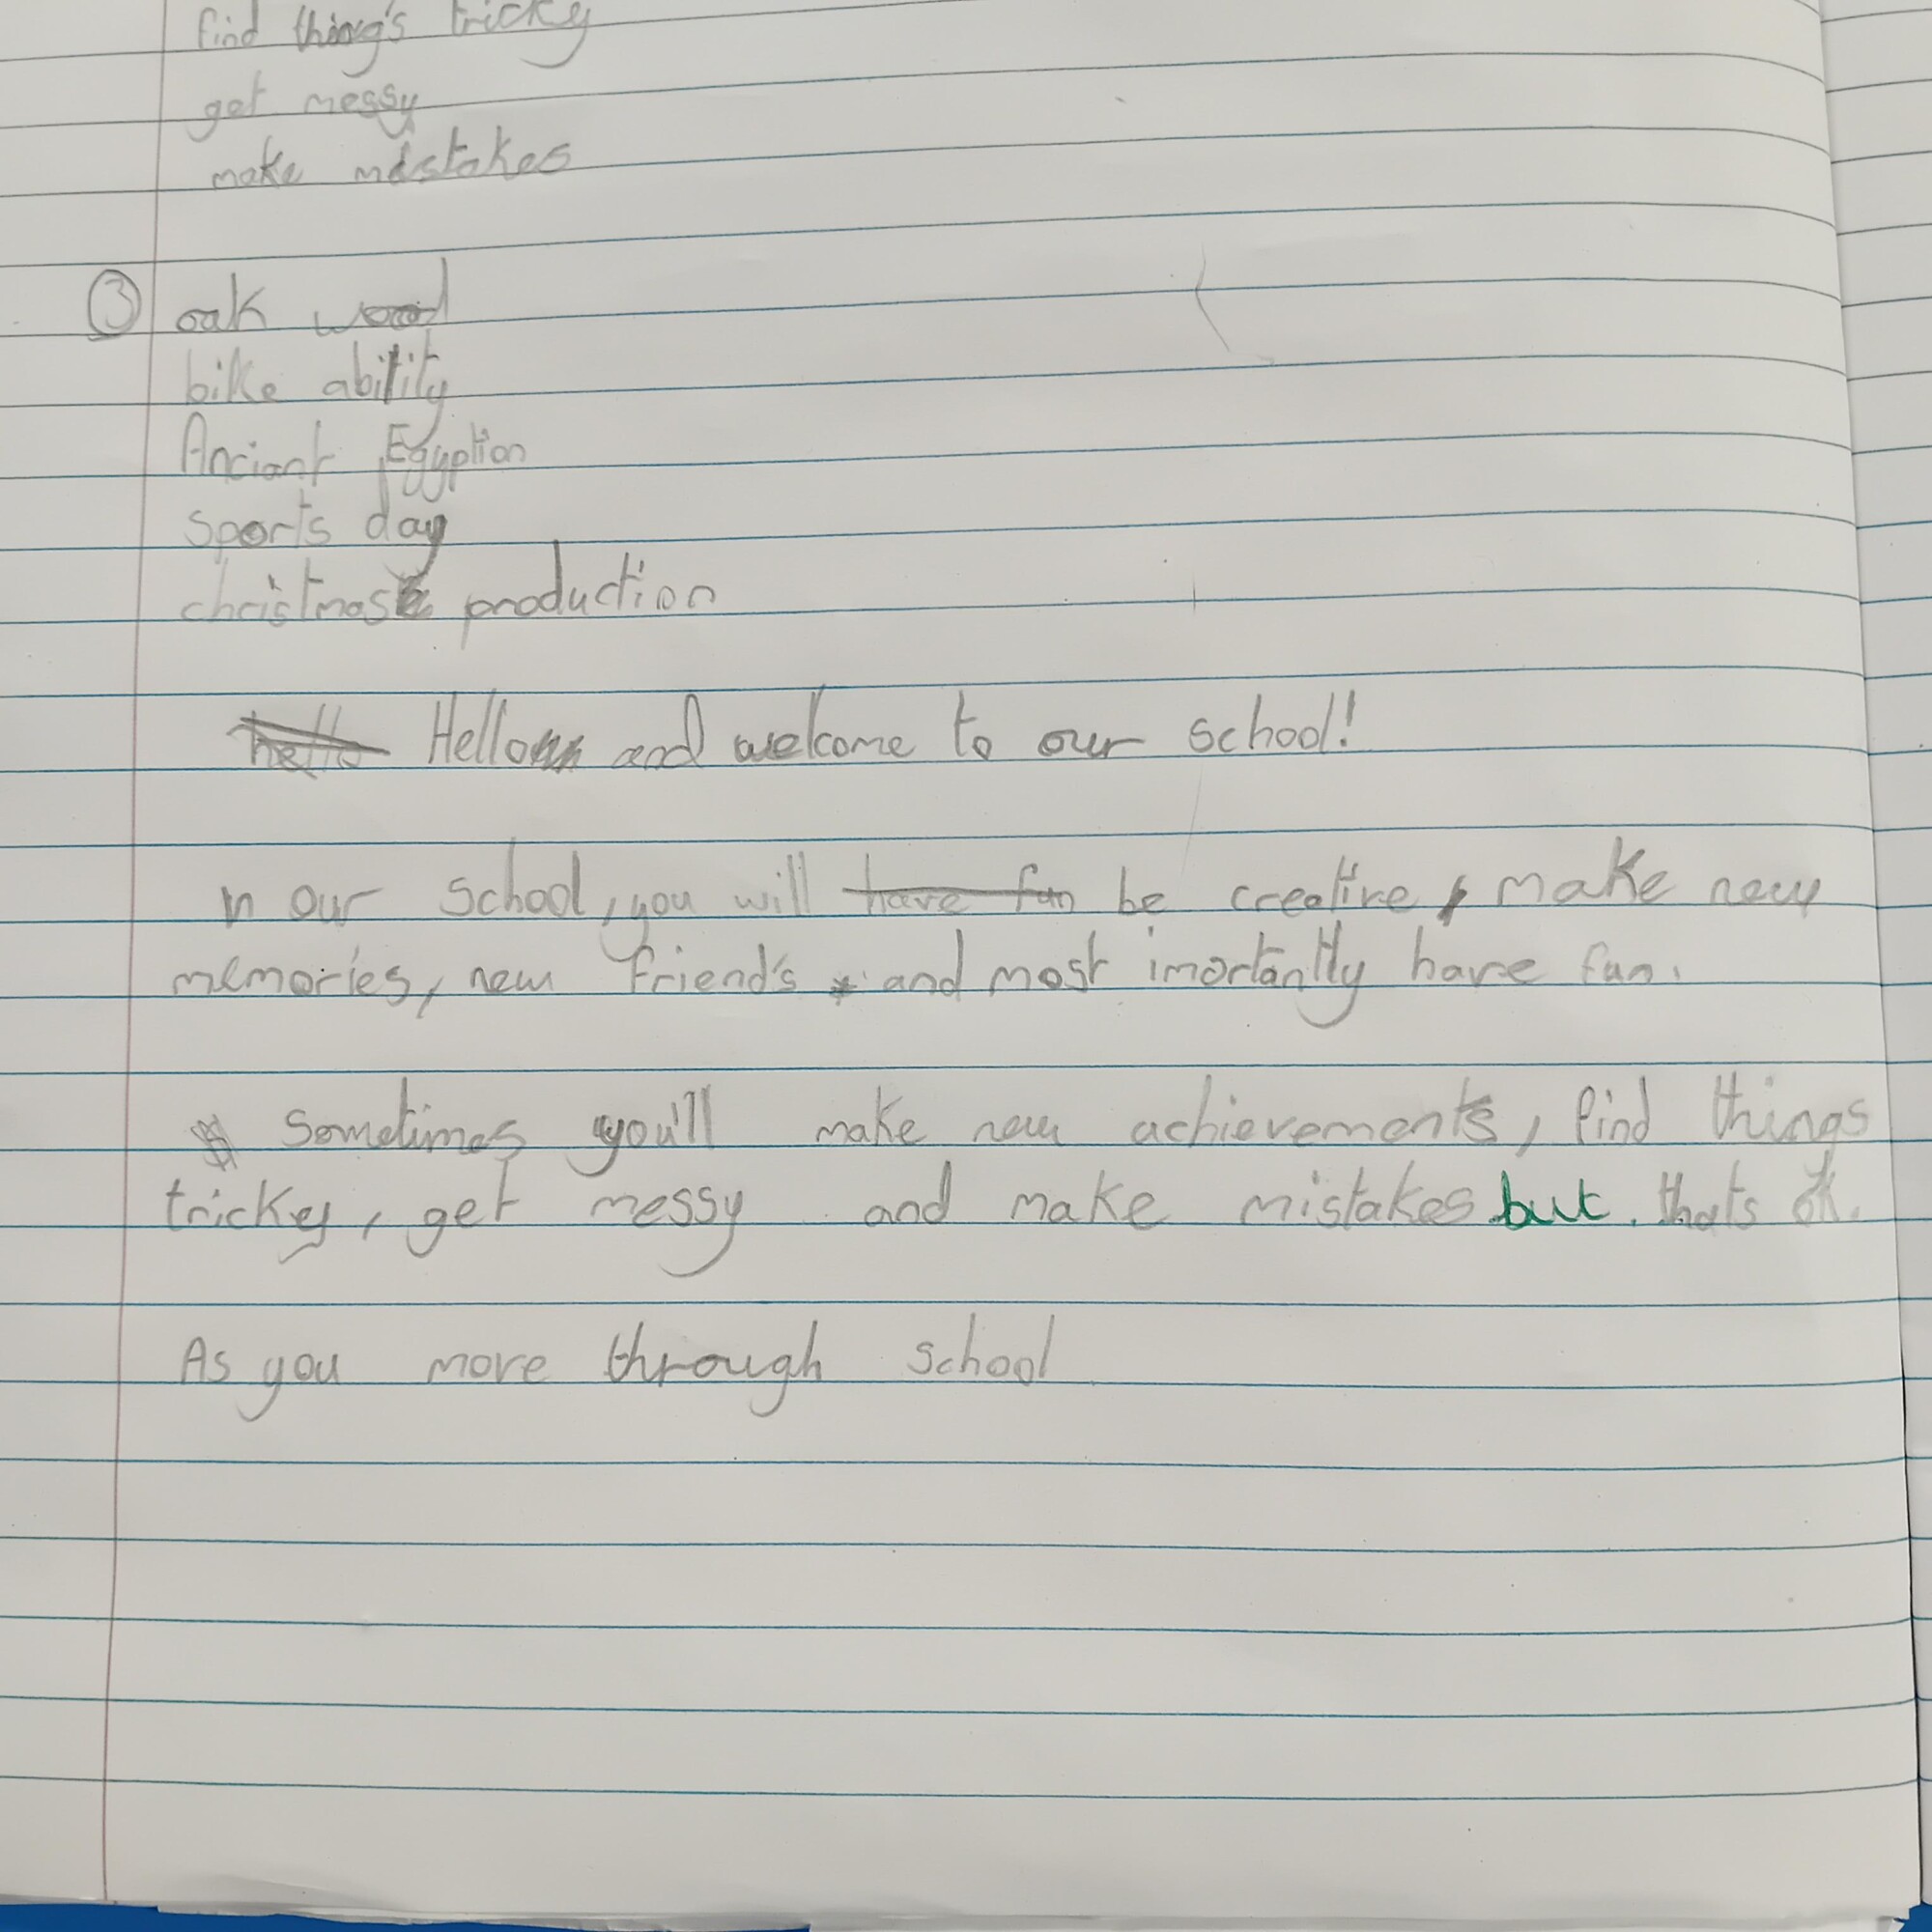 find thing's tricky
get messy
make mistakes
③ oak wood
bike ability
Anciant Egyption
sports day
christmas production
hello Hello and welcome to our school!
In our school, you will have fun be creative, make new
memories, new friend's and most imortantly have fun.
Sometimes you'll make new achievements, find things
tricky, get messy and make mistakes but. thats ok.
As you move through school